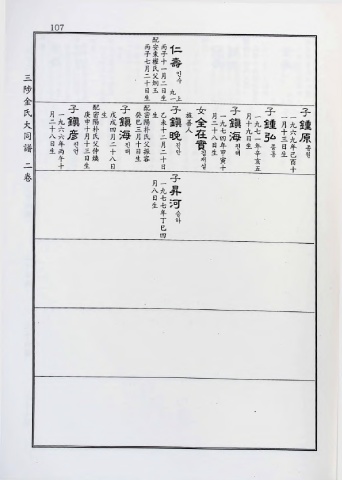 107
三陟金氏大同譜 二卷
仁壽 인수 九一上
丙子十一月二日生
配安東權氏父炳玉
丙子七月二十日生
子 鍾原 종원
一九六九年己酉十
一月十三日生
子 鍾弘 종홍
一九七一年辛亥五
月十九日生
子 鎭海 진해
一九七四年甲寅十
月二十八日生
女 全在實 전재실
旌善人
子 鎭晚 진만
乙未十二月二十日
生
配密陽朴氏父振容
癸巳三月十日生
子 鎭海 진해
戊戌四月二十八日
生
配密陽朴氏父仲燐
庚申十月十三日生
子 鎭彦 진언
一九六六年丙午十
月二十八日生
子 昇河 승하
一九七七年丁巳四
月八日生